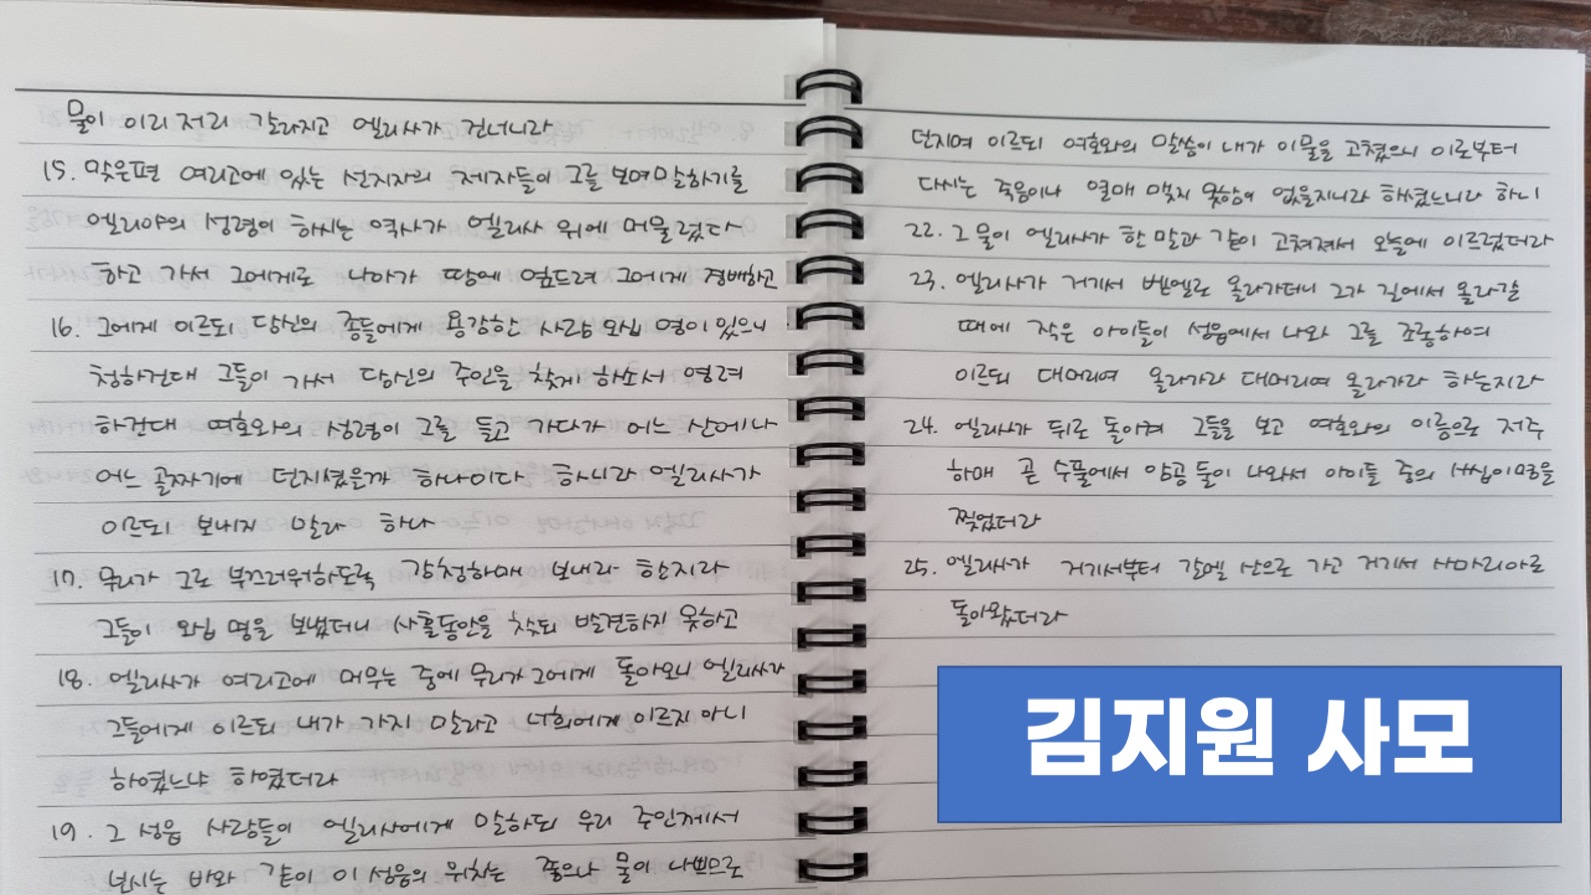 물이 이리 저리 갈라지고 엘리사가 건너니라
15. 맞은편 여리고에 있는 선지자의 제자들이 그를 보며 말하기를
엘리야의 성령이 하시는 역사가 엘리사 위에 머물렀다
하고 가서 그에게로 나아가 땅에 엎드려 그에게 경배하고
16. 그에게 이르되 당신의 종들에게 용감한 사람 오십 명이 있으니
청하건대 그들이 가서 당신의 주인을 찾게 하소서 염려
하건대 여호와의 성령이 그를 들고 가다가 어느 산에나
어느 골짜기에 던지셨을까 하나이다 하니라 엘리사가
이르되 보내지 말라 하나
17. 무리가 그로 부끄러워하도록 강청하매 보내라 한지라
그들이 오십 명을 보냈더니 사흘동안을 찾되 발견하지 못하고
18. 엘리사가 여리고에 머무는 중에 무리가 그에게 돌아오니 엘리사가
그들에게 이르되 내가 가지 말라고 너희에게 이르지 아니
하였느냐 하였더라
19. 그 성읍 사람들이 엘리사에게 말하되 우리 주인께서
보시는 바와 같이 이 성읍의 위치는 좋으나 물이 나쁘므로
던지며 이르되 여호와의 말씀이 내가 이 물을 고쳤으니 이로부터
다시는 죽음이나 열매 맺지 못함이 없을지니라 하셨느니라 하니
22. 그 물이 엘리사가 한 말과 같이 고쳐져서 오늘에 이르렀더라
23. 엘리사가 거기서 벧엘로 올라가더니 그가 길에서 올라갈
때에 작은 아이들이 성읍에서 나와 그를 조롱하여
이르되 대머리여 올라가라 대머리여 올라가라 하는지라
24. 엘리사가 뒤로 돌이켜 그들을 보고 여호와의 이름으로 저주
하매 곧 수풀에서 암곰 둘이 나와서 아이들 중의 사십이명을
찢었더라
25. 엘리사가 거기서부터 갈멜 산으로 가고 거기서 사마리아로
돌아왔더라
김지원 사모